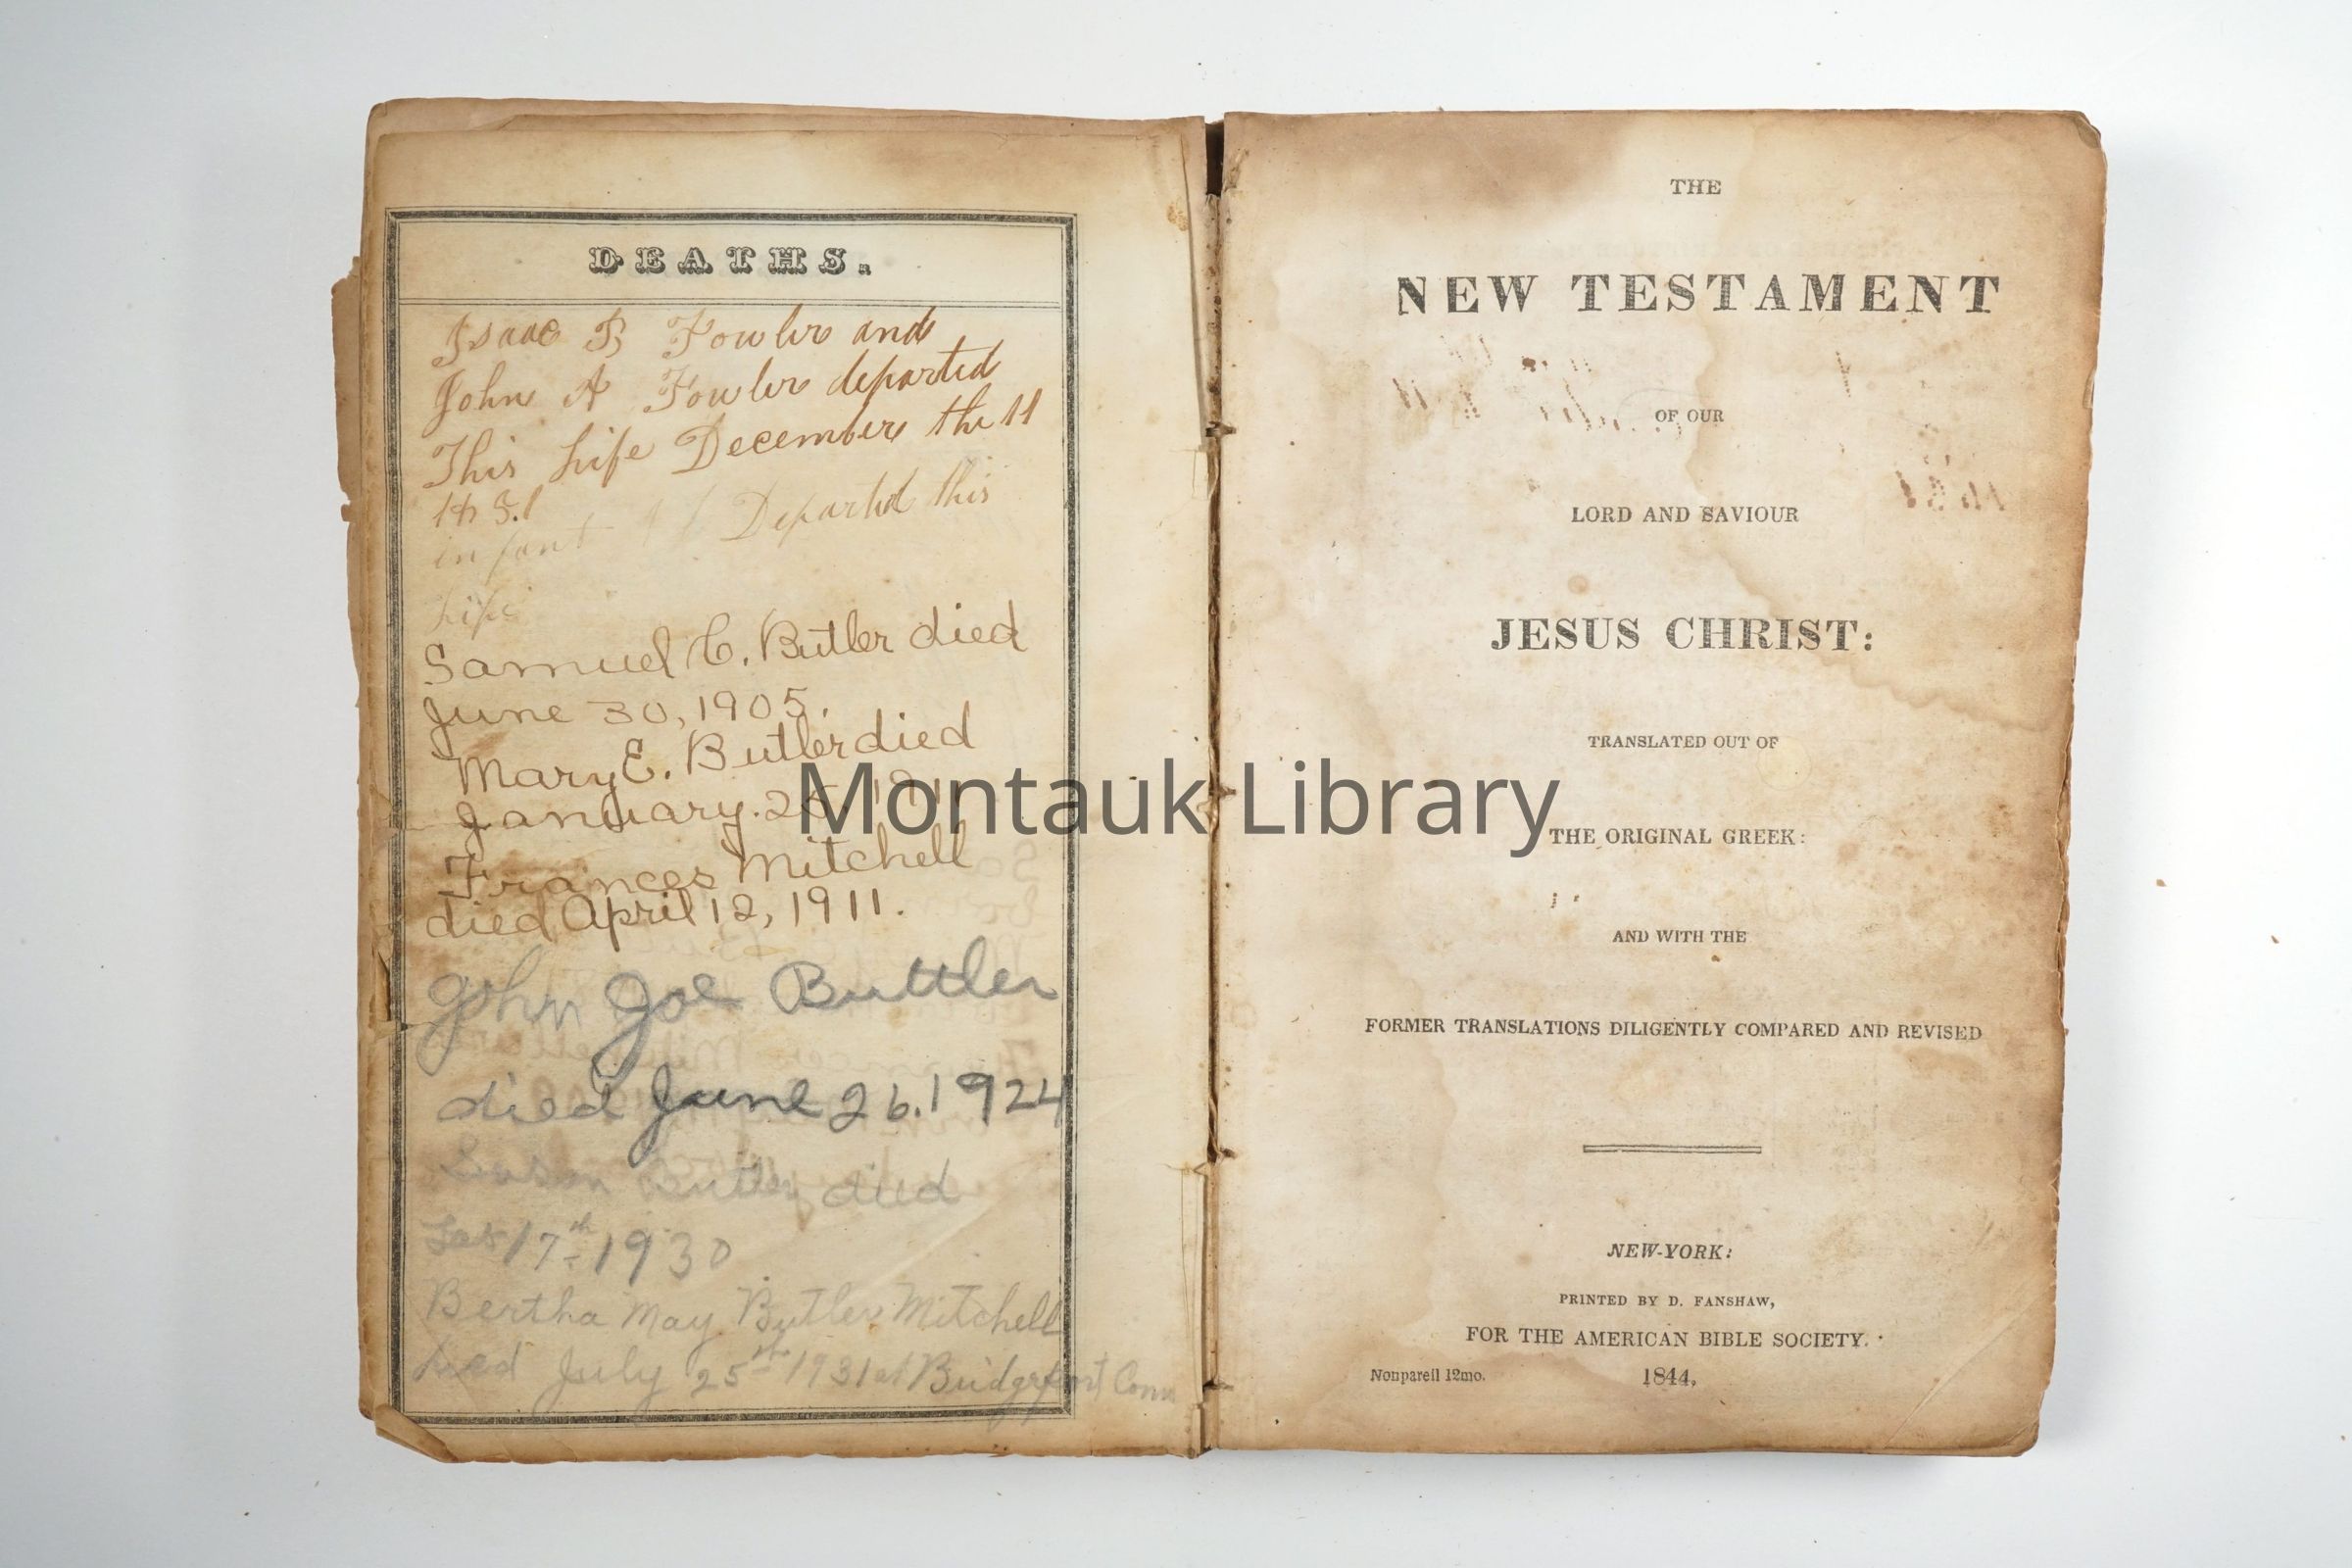 DEATHS.
Isaac B Fowler and
John A Fowler departed
This Life December the 11
infant Departed this
Life
Samuel C. Butler died
June 30, 1905.
Mary E. Butler died
January. 1911
Frances Mitchell
died April 12, 1911.
John Joe Buttler
died June 26. 1924
Susan Butler died
17th 1930
Bertha May Butler Mitchell
died July 25th 1931 at Bridgeport Conn
THE
NEW TESTAMENT
OF OUR
LORD AND SAVIOUR
JESUS CHRIST:
TRANSLATED OUT OF
THE ORIGINAL GREEK:
AND WITH THE
FORMER TRANSLATIONS DILIGENTLY COMPARED AND REVISED
NEW-YORK:
PRINTED BY D. FANSHAW,
FOR THE AMERICAN BIBLE SOCIETY.
Nonpareil 12mo. 1844.
Montauk Library